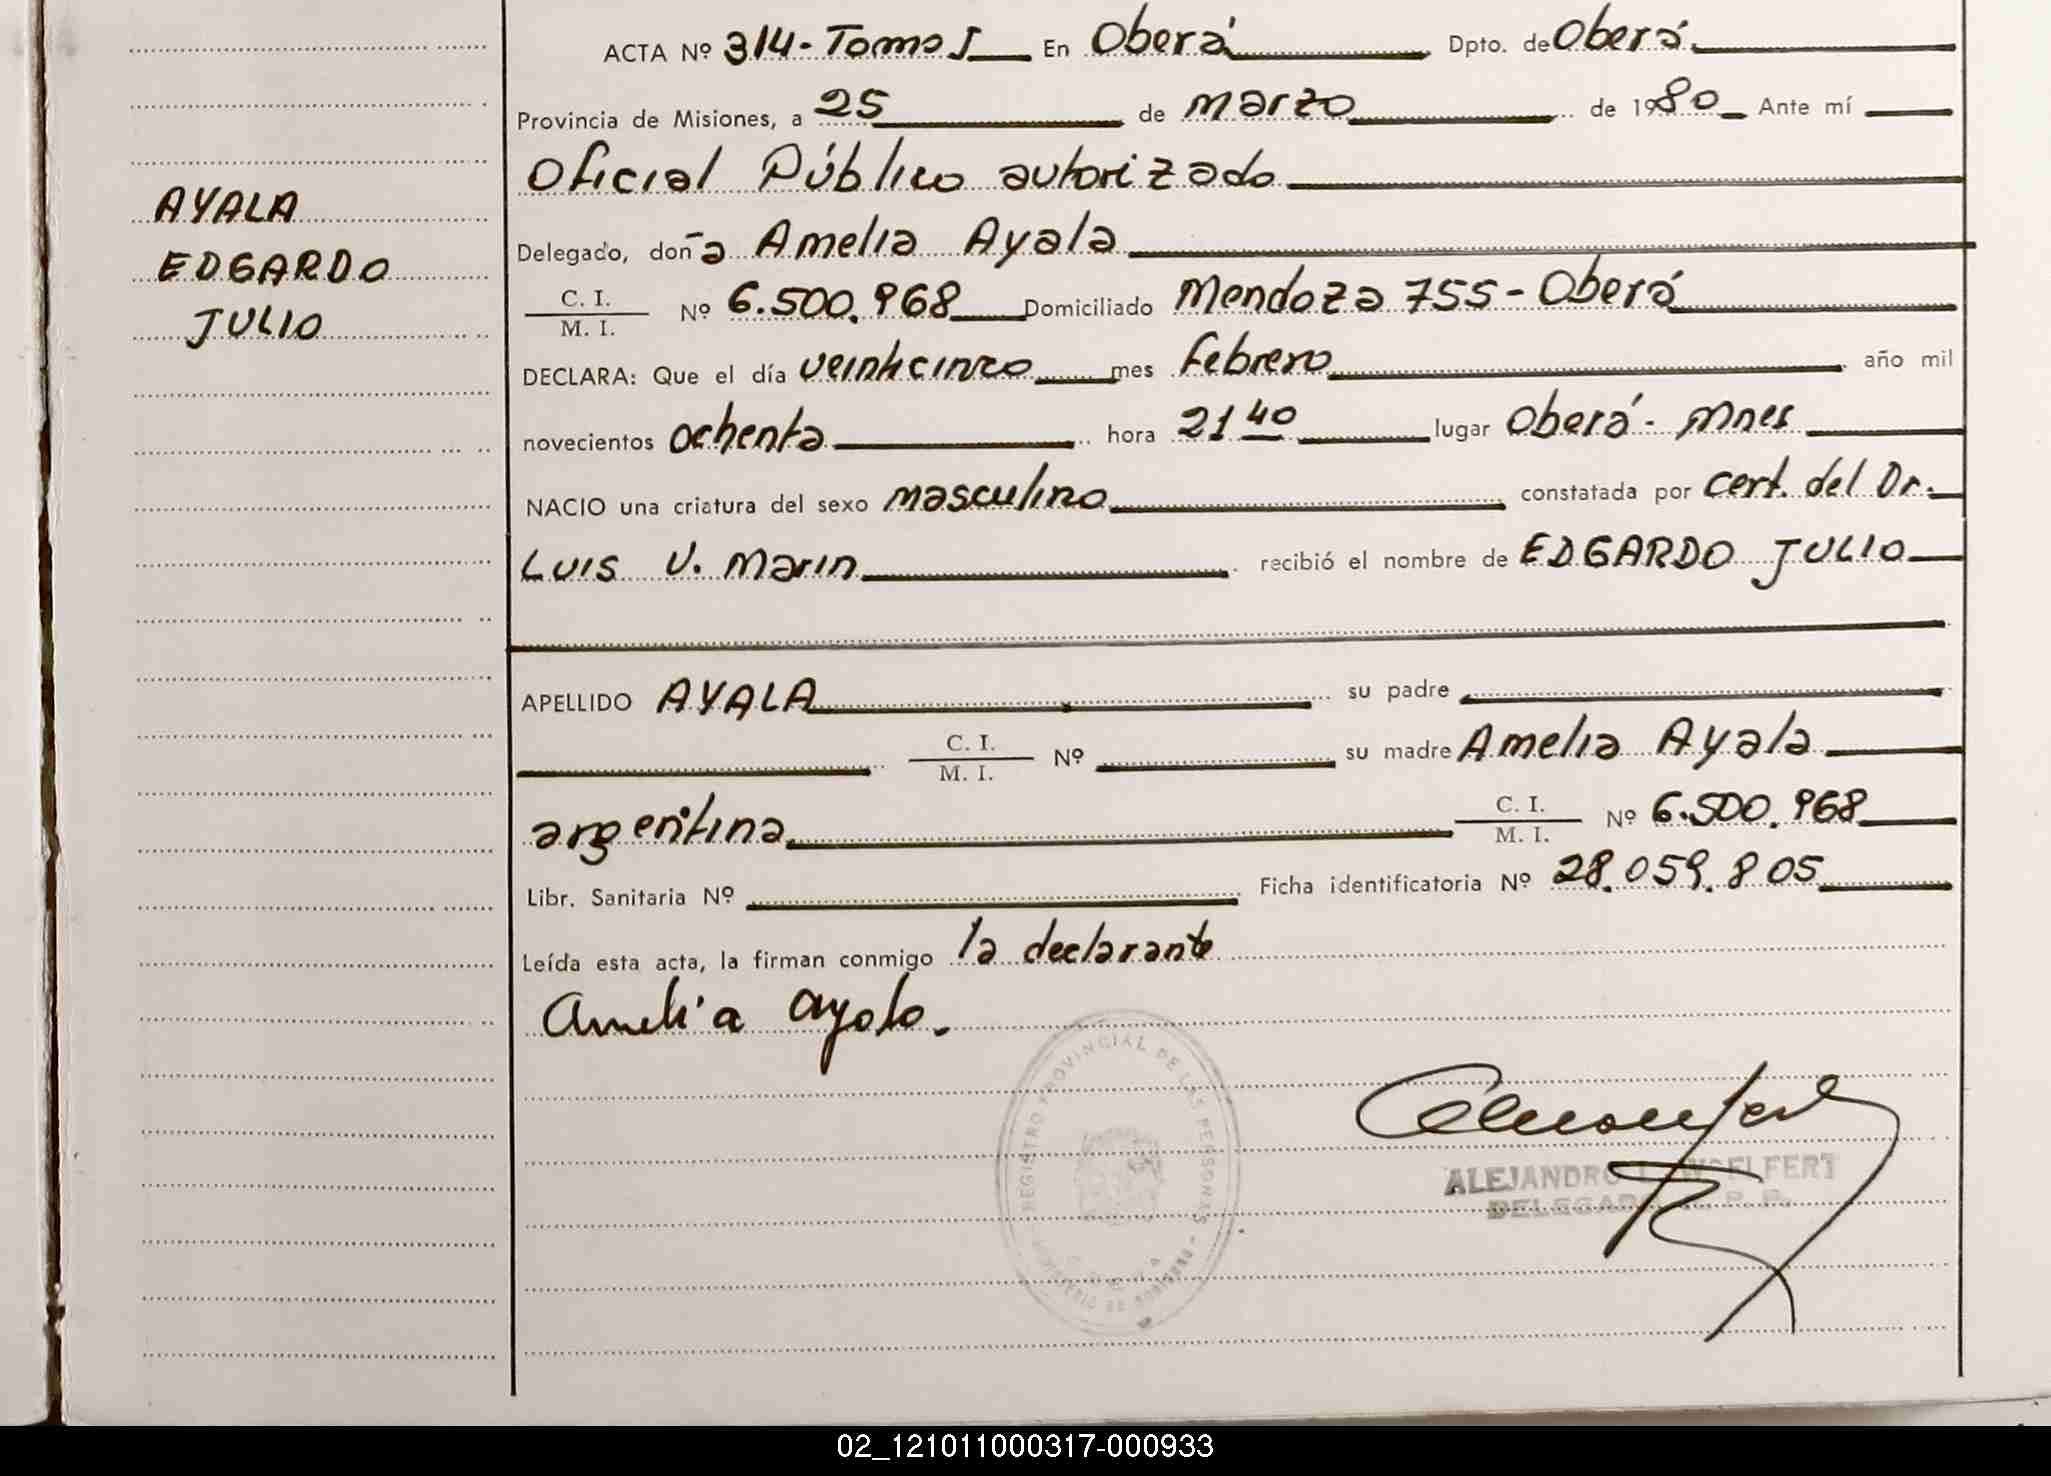 ACTA Nº 314 - Tomo I En Oberá Dpto. de Oberá
Provincia de Misiones, a 25 de marzo de 1980 Ante mí
Oficial Público autorizado
AYALA
EDGARDO
JULIO
Delegado, doña Amelia Ayala
C. I.
M. I. Nº 6.500.968 Domiciliado Mendoza 755 - Oberá
DECLARA: Que el día veinticinco mes febrero año mil
novecientos ochenta hora 21 40 lugar Oberá - Mnes
NACIO una criatura del sexo masculino constatada por cert. del Dr.
Luis V. Marin recibió el nombre de EDGARDO JULIO
APELLIDO AYALA su padre
C. I.
M. I. Nº su madre Amelia Ayala
argentina C. I.
M. I. Nº 6.500.968
Libr. Sanitaria Nº Ficha identificatoria Nº 28.059.805
Leída esta acta, la firman conmigo la declarante
Amelia Ayala.
REGISTRO PROVINCIAL DE LAS PERSONAS
ALEJANDRO
DELEGADO R. P. P.
02_121011000317-000933